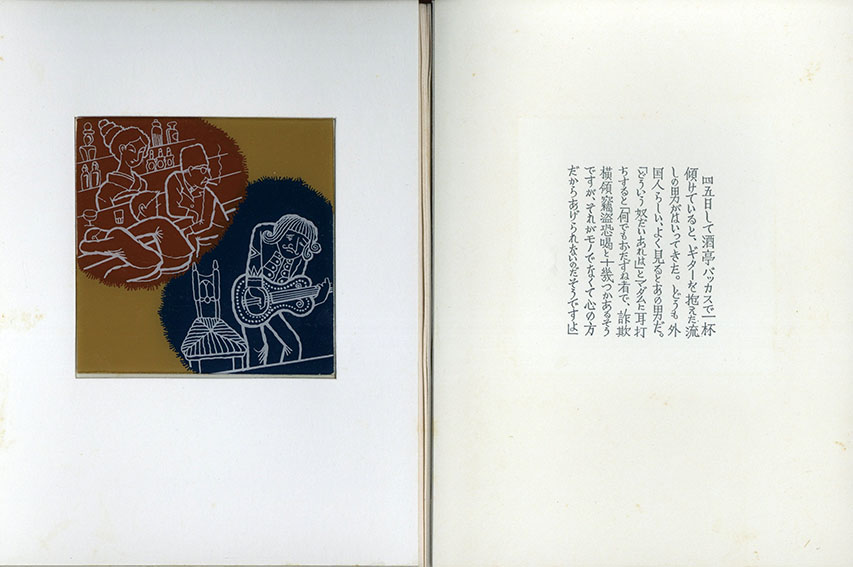 四五日して酒亭バッカスで一杯
傾けていると、ギターを抱えた流
しの男がはいってきた。どうも外
国人らしい、よく見るとあの男だ。
「どういう奴だいあれは」とマダムに耳打
ちすると「何でもおたずね者で、詐欺
横領窃盗恐喝と十幾つかあるそう
ですが、それがモノでなくて心の方
だからあげられないのだそうですよ」